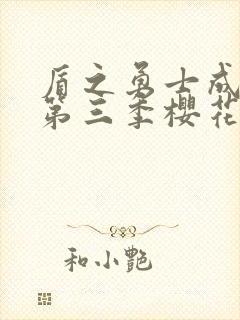 盾之勇士成
第三季樱花
和小艷